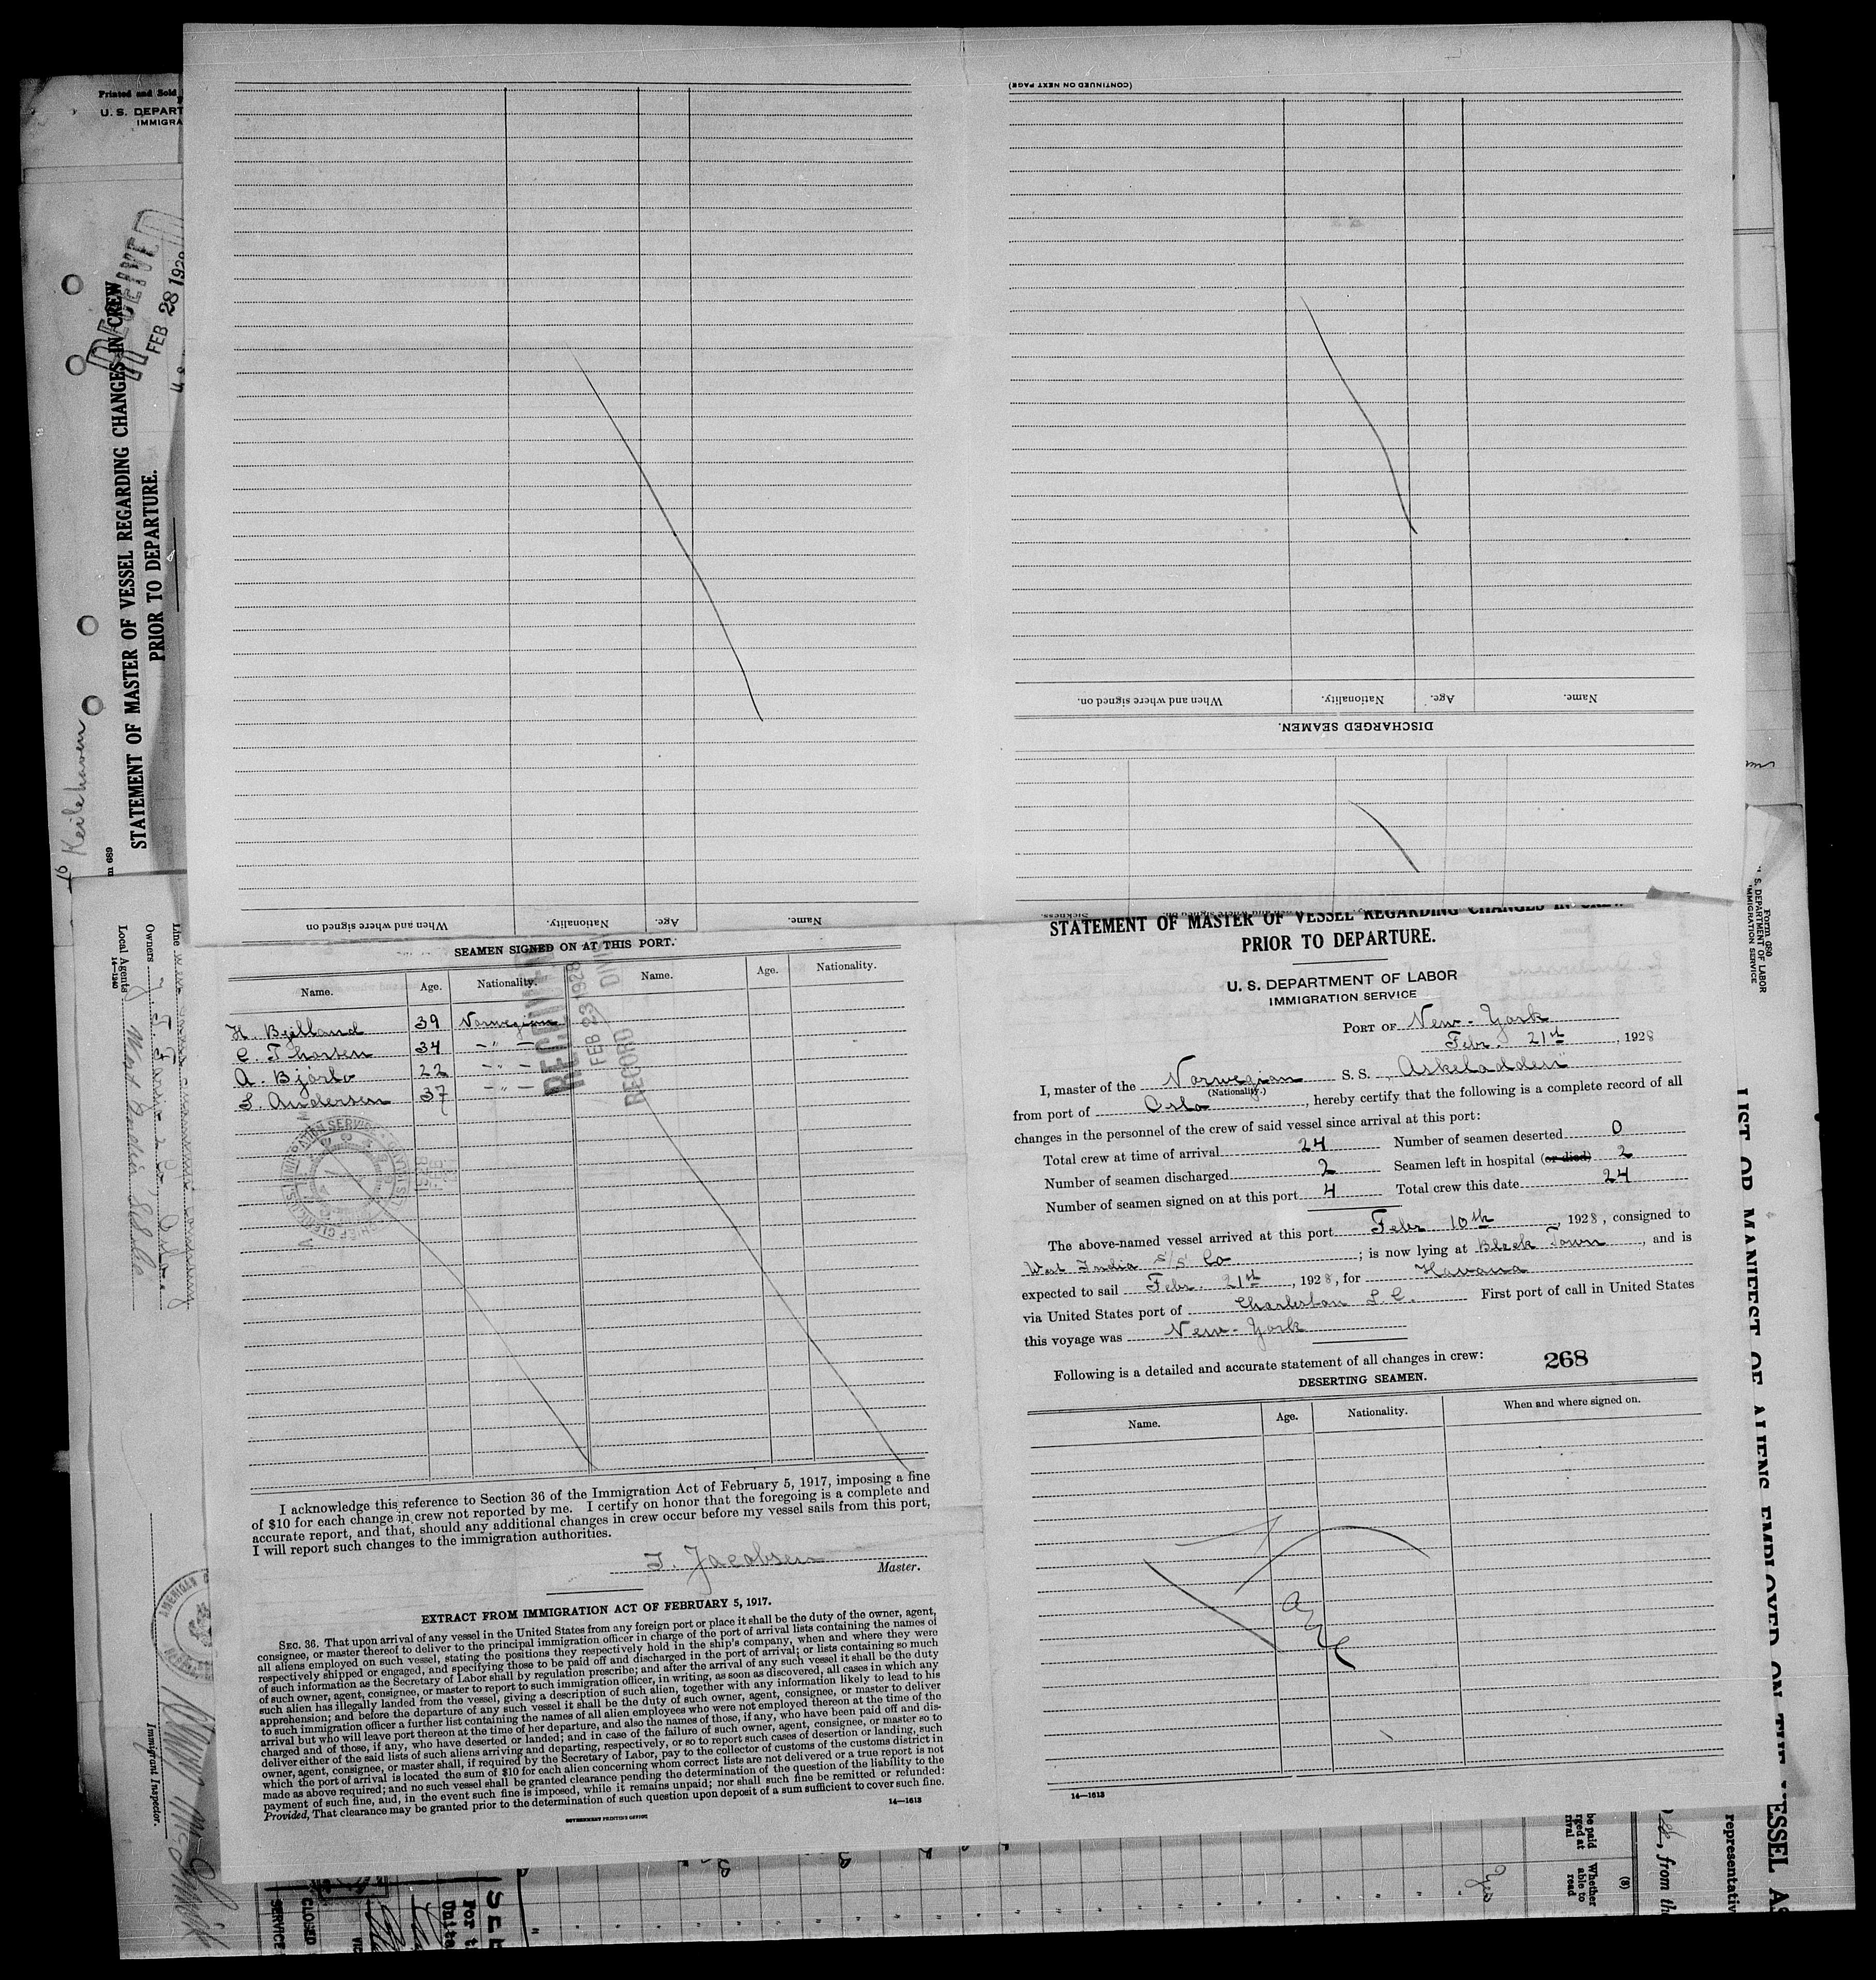 Printed and Sold
U. S. DEPART
IMMIGRA
RECEIVED
FEB 28 192
STATEMENT OF MASTER OF VESSEL REGARDING CHANGES IN CREW
PRIOR TO DEPARTURE.
Keilehaven
Owners
Local Agents
14—1240
Immigrant Inspector.
(CONTINUED ON NEXT PAGE)
When and where signed on.
Nationality.
Age.
Name.
DISCHARGED SEAMEN.
When and where signed on
Nationality.
Age.
Name.
SEAMEN SIGNED ON AT THIS PORT.
Name. Age. Nationality. Name. Age. Nationality.
H. Bjelland 39 Norwegian
C. Thorsen 34 -"-
A. Bjørlo 22 -"-
L. Andersen 37 -"-
RECEIVED
FEB 23 1928
RECORD DIV
I acknowledge this reference to Section 36 of the Immigration Act of February 5, 1917, imposing a fine
of $10 for each change in crew not reported by me. I certify on honor that the foregoing is a complete and
accurate report, and that, should any additional changes in crew occur before my vessel sails from this port,
I will report such changes to the immigration authorities.
T. Jacobsen
Master.
EXTRACT FROM IMMIGRATION ACT OF FEBRUARY 5, 1917.
SEC. 36. That upon arrival of any vessel in the United States from any foreign port or place it shall be the duty of the owner, agent,
consignee, or master thereof to deliver to the principal immigration officer in charge of the port of arrival lists containing the names of
all aliens employed on such vessel, stating the positions they respectively hold in the ship's company, when and where they were
respectively shipped or engaged, and specifying those to be paid off and discharged in the port of arrival; or lists containing so much
of such information as the Secretary of Labor shall by regulation prescribe; and after the arrival of any such vessel it shall be the duty
of such owner, agent, consignee, or master to report to such immigration officer, in writing, as soon as discovered, all cases in which any
such alien has illegally landed from the vessel, giving a description of such alien, together with any information likely to lead to his
apprehension; and before the departure of any such vessel it shall be the duty of such owner, agent, consignee, or master to deliver
to such immigration officer a further list containing the names of all alien employees who were not employed thereon at the time of the
arrival but who will leave port thereon at the time of her departure, and also the names of those, if any, who have been paid off and dis-
charged and of those, if any, who have deserted or landed; and in case of the failure of such owner, agent, consignee, or master so to
deliver either of the said lists of such aliens arriving and departing, respectively, or so to report such cases of desertion or landing, such
owner, agent, consignee, or master shall, if required by the Secretary of Labor, pay to the collector of customs of the customs district in
which the port of arrival is located the sum of $10 for each alien concerning whom correct lists are not delivered or a true report is not
made as above required; and no such vessel shall be granted clearance pending the determination of the question of the liability to the
payment of such fine, and, in the event such fine is imposed, while it remains unpaid; nor shall such fine be remitted or refunded:
Provided, That clearance may be granted prior to the determination of such question upon deposit of a sum sufficient to cover such fine.
GOVERNMENT PRINTING OFFICE
14—1613
STATEMENT OF MASTER OF VESSEL REGARDING CHANGES IN CREW
PRIOR TO DEPARTURE.
U. S. DEPARTMENT OF LABOR
IMMIGRATION SERVICE
PORT OF New-York
Febr. 21st, 1928
I, master of the Norwegian S. S. "Askeladden"
(Nationality.)
from port of Oslo, hereby certify that the following is a complete record of all
changes in the personnel of the crew of said vessel since arrival at this port:
Total crew at time of arrival 24 Number of seamen deserted 0
Number of seamen discharged 2 Seamen left in hospital (or died) 2
Number of seamen signed on at this port 4 Total crew this date 24
The above-named vessel arrived at this port Febr 10th, 1928, consigned to
West India S/S Co; is now lying at Bleek Town, and is
expected to sail Febr. 21st, 1928, for Havana
via United States port of Charleston S.C. First port of call in United States
this voyage was New-York
Following is a detailed and accurate statement of all changes in crew: 268
DESERTING SEAMEN.
Name. Age. Nationality. When and where signed on.
14—1613
Form 680
U. S. DEPARTMENT OF LABOR
IMMIGRATION SERVICE
LIST OR MANIFEST OF ALIENS EMPLOYED ON THE VESSEL AS
representativ
from th
(8)
Whether
able to
read
Yes
CLOSED
SERVICE